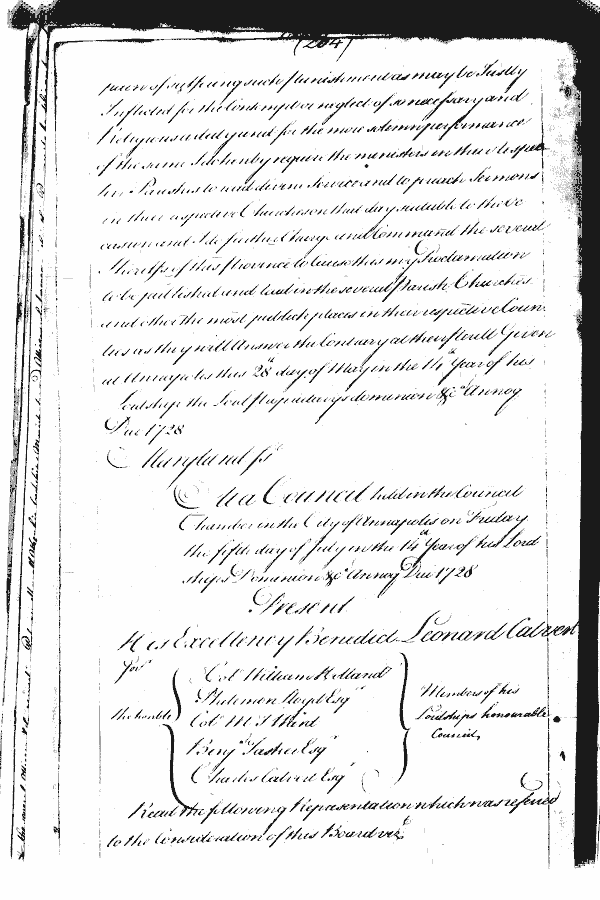 (204)
pain of suffering such punishment as may be Justly
Inflicted for the Contempt or neglect of so necessary and
Religious a duty and for the more solemn performance
of the same I do hereby require the ministers in their respec
tive Parishes to read divine Service and to preach Sermons
in their respective Churches on that day suitable to the Oc
casion and I do further Charge and Command the several
Sheriffs of this Province to Cause this my Proclamation
to be published and read in the several Parish Churches
and other the most publick places in their respective Coun
ties as they will Answer the Contrary at their perill Given
at Annapolis this 28th day of May in the 14th Year of his
Lordships the Lord Proprietarys dominion &c Annoq
Dni 1728
Maryland ss
At a Council held in the Council
Chamber in the City of Annapolis on Friday
the fifth day of July in the 14th Year of his Lord
ships Dominion &c Annoq Dni 1728
Present
His Excellency Benedict Leonard Calvert
Govr
The honble
Col William Holland
Philemon Lloyd Esqr
Col M T Ward
Benja Tasker Esqr
Charles Calvert Esqr
Members of his
Lordships honourable
Council
Read the following Representation which was referred
to the Consideration of this Board vizt